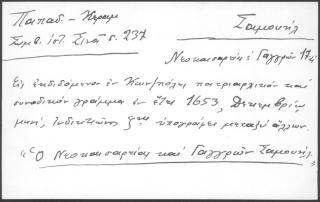 Παπαδ. - Κεραμ
Συμβ. ἱστ. Σινᾶ σ. 237
Σαμουήλ
Νεοκαισαρείας & Γαγγρῶν 17
Εἰς ἐκδιδόμενον ἐν Κων/πόλει πατριαρχικόν καί
συνοδικόν γράμμα ἐν ἔτει 1653, Δεκεμβρίῳ
μηνί, Ἰνδικτιῶνος ὑπογράφει μεταξύ ἄλλων
"Ὁ Νεοκαισαρείας καί Γαγγρῶν Σαμουήλ"